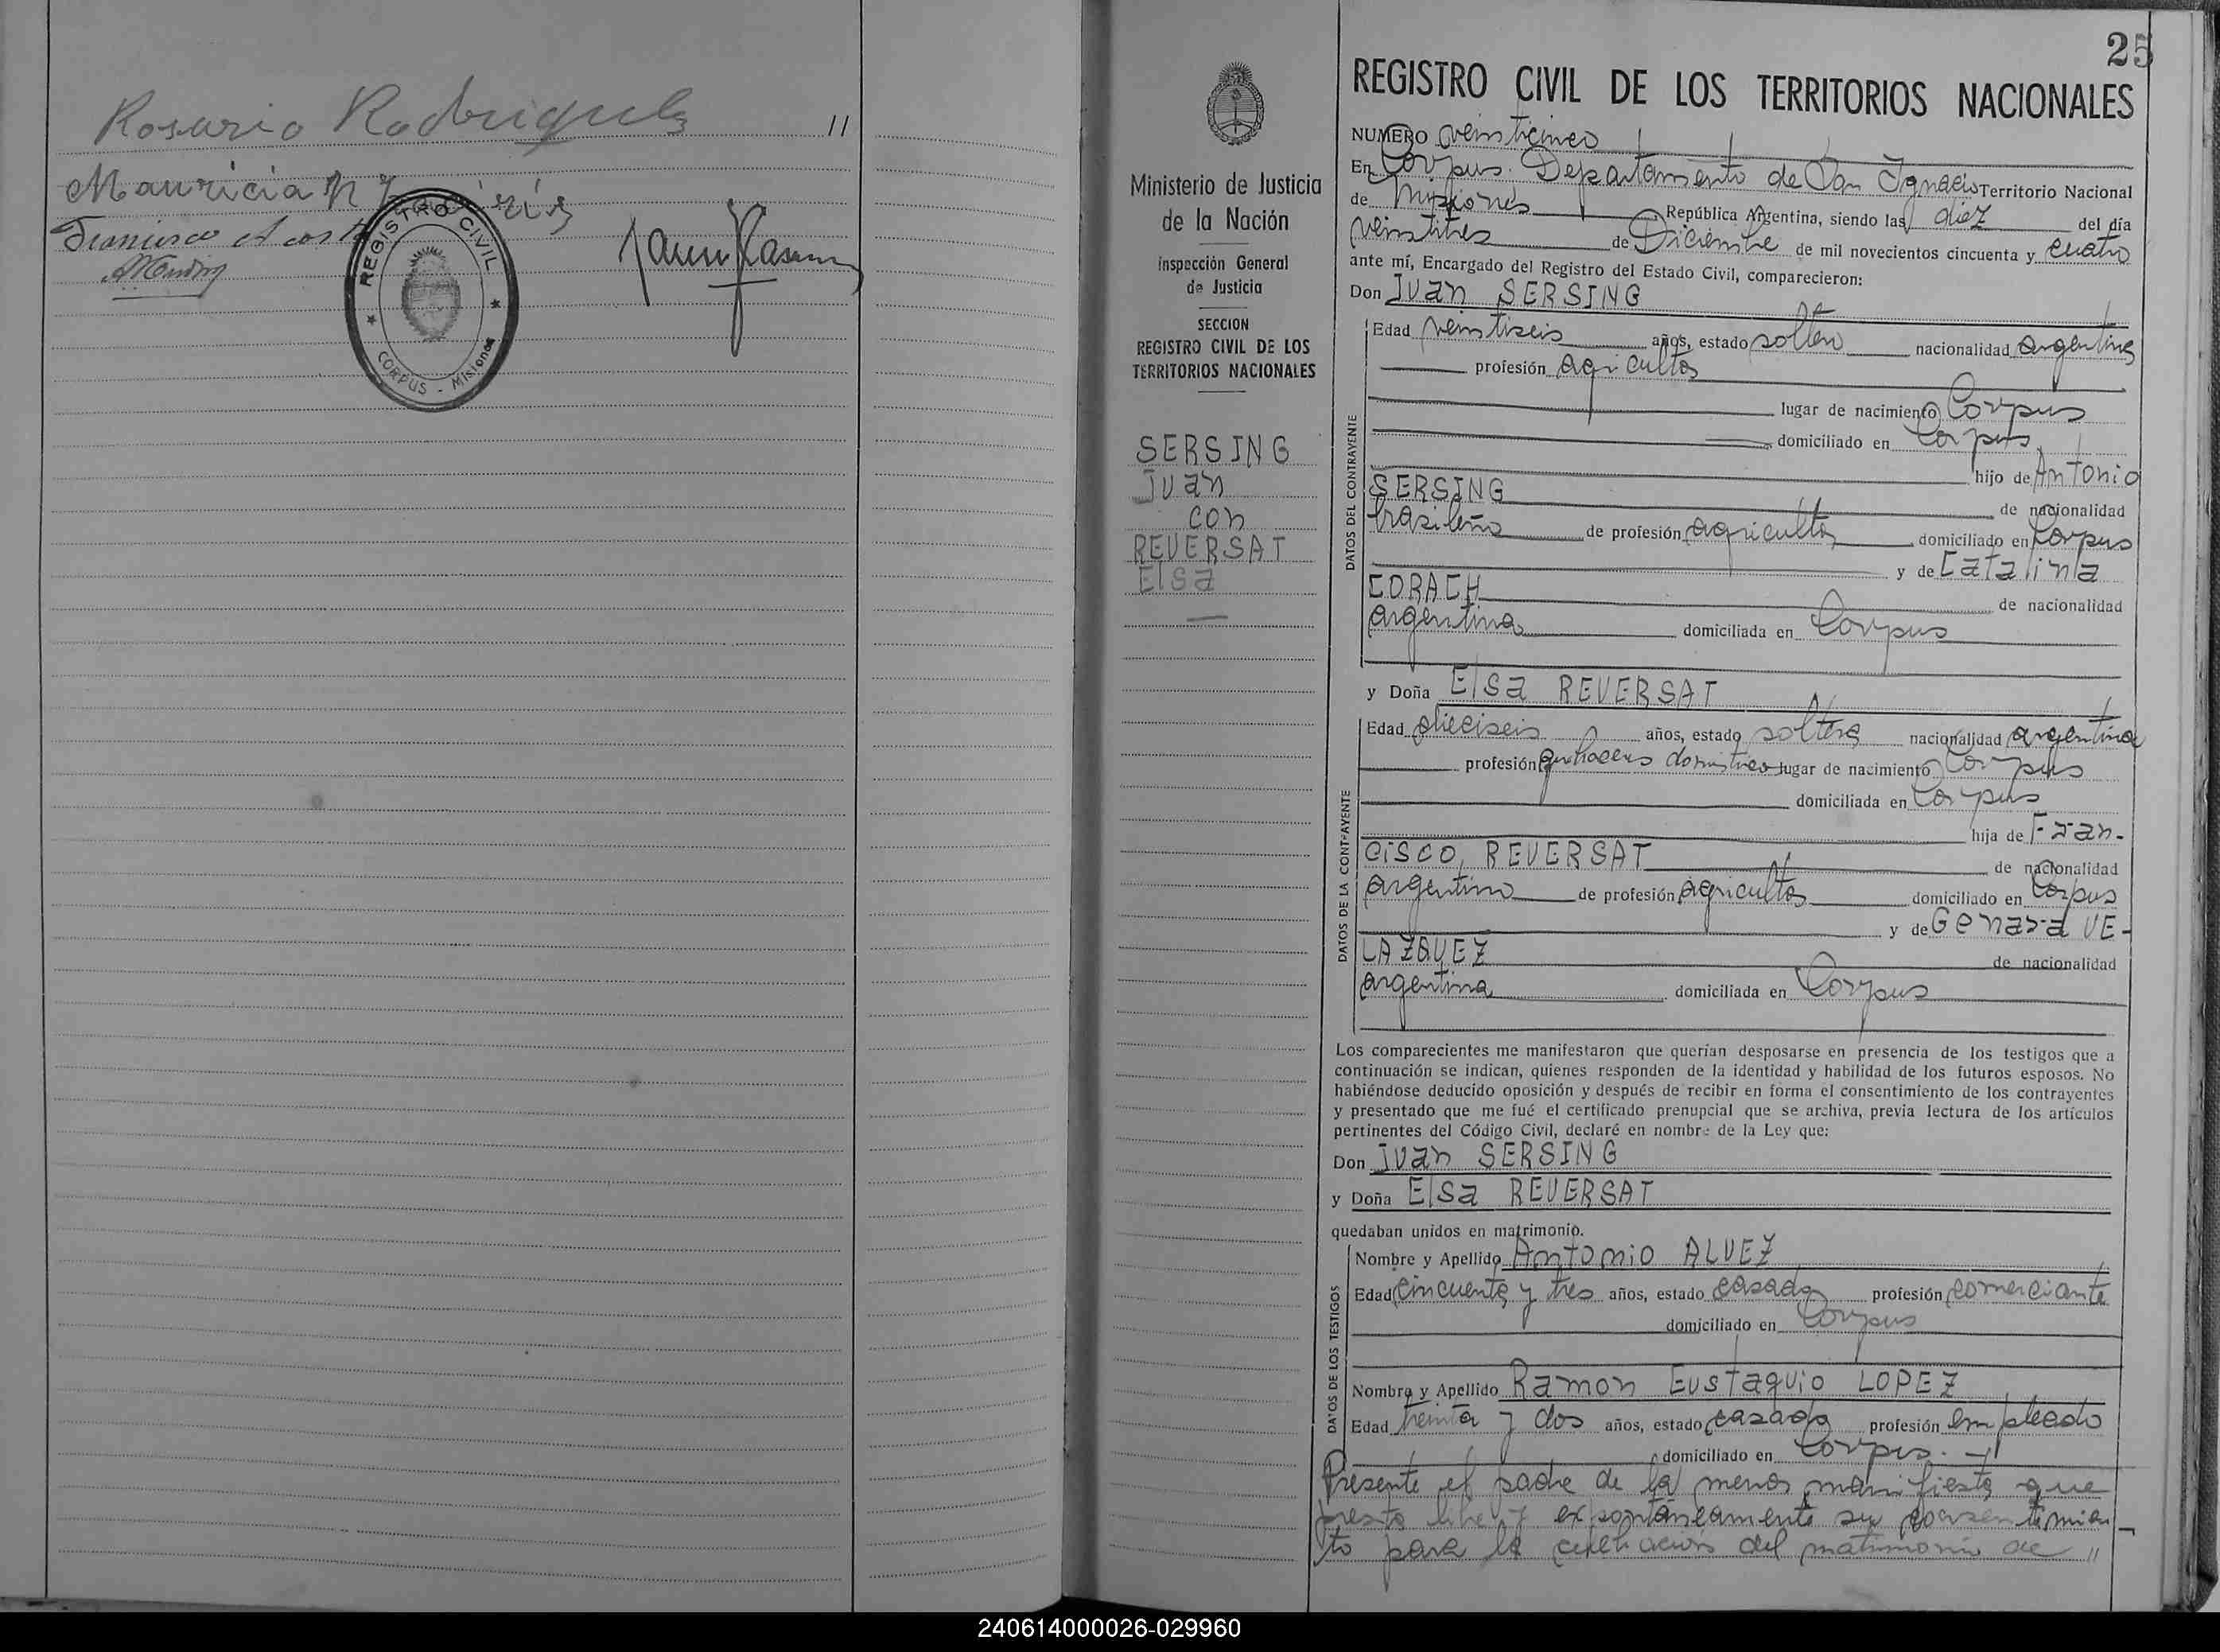 Rosario Rodriguez
"
Mauricia
Francisco Acosta
REGISTRO CIVIL
CORPUS - Misiones
25
Ministerio de Justicia
de la Nación
Inspección General
de Justicia
SECCION
REGISTRO CIVIL DE LOS
TERRITORIOS NACIONALES
SERSING
Juan
con
REVERSAT
Elsa
REGISTRO CIVIL DE LOS TERRITORIOS NACIONALES
NUMERO veinticinco
En Corpus. Departamento de San Ignacio Territorio Nacional
de Misiones República Argentina, siendo las diez del día
veintitres de Diciembre de mil novecientos cincuenta y cuatro
ante mí, Encargado del Registro del Estado Civil, comparecieron:
Don Juan SERSING
DATOS DEL CONTRAYENTE
Edad veintiseis años, estado soltero nacionalidad argentina
profesión agricultor
lugar de nacimiento Corpus
domiciliado en Corpus
hijo de Antonio
SERSING de nacionalidad
brasileña de profesión agricultor domiciliado en Corpus
y de Catalina
CORACH de nacionalidad
argentina domiciliada en Corpus
y Doña Elsa REVERSAT
DATOS DE LA CONTRAYENTE
Edad dieciseis años, estado soltera nacionalidad argentina
profesión quehaceres domesticos lugar de nacimiento Corpus
domiciliada en Corpus
hija de Fran-
cisco, REVERSAT de nacionalidad
argentino de profesión agricultor domiciliado en Corpus
y de Genara VE-
LAZQUEZ de nacionalidad
argentina domiciliada en Corpus
Los comparecientes me manifestaron que querían desposarse en presencia de los testigos que a
continuación se indican, quienes responden de la identidad y habilidad de los futuros esposos. No
habiéndose deducido oposición y después de recibir en forma el consentimiento de los contrayentes
y presentado que me fué el certificado prenupcial que se archiva, previa lectura de los artículos
pertinentes del Código Civil, declaré en nombre de la Ley que:
Don Juan SERSING
y Doña Elsa REVERSAT
quedaban unidos en matrimonio.
DATOS DE LOS TESTIGOS
Nombre y Apellido Antonio ALVEZ
Edad cincuenta y tres años, estado casado profesión comerciante
domiciliado en Corpus
Nombre y Apellido Ramon Eustaquio LOPEZ
Edad treinta y dos años, estado casado profesión empleado
domiciliado en Corpus. -
Presente el padre de la menor manifiesta que
presta libre y expontáneamente su consentimien-
to para la celebracion del matrimonio de "
240614000026-029960